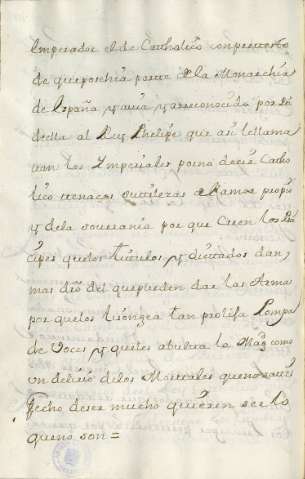 Emperador el de Catholico con pretexto
de que poshia parte de la Monarchia
de España y avia reconocido por
della al Duq Phelipe que asi le llama
van los Ymperiales por no decir Catho
lico tenaces
y de la soverania por que Creen los Prin
cipes que los titulos y dictados dan
mas dro del que pueden dar las Armas
por que los lisongea tan prolija Pompa
de voces y que les abulta la Mag como
un delirio de los Mortales que no satis
fecho de ser mucho quieren ser lo
que no son =